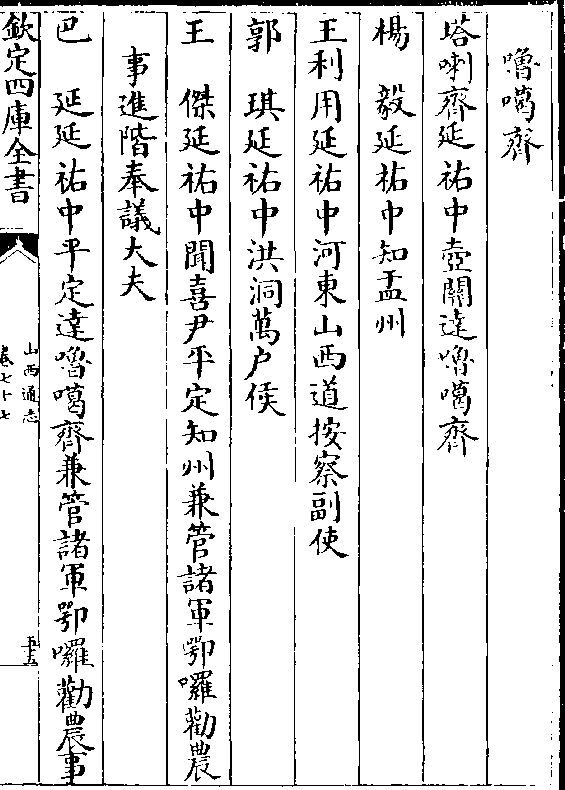 嚕噶齊
塔喇齊延祐中壺關達嚕噶齊
楊　毅延祐中知盂州
王利用延祐中河東山西道按察副使
郭　琪延祐中洪洞萬户侯
王　傑延祐中聞喜尹平定知州兼管諸軍鄂囉勸農
事進階奉議大夫
巴　延延祐中平定達嚕噶齊兼管諸軍鄂囉勸農事
欽定四庫全書
山西通志
卷七十七
五十五